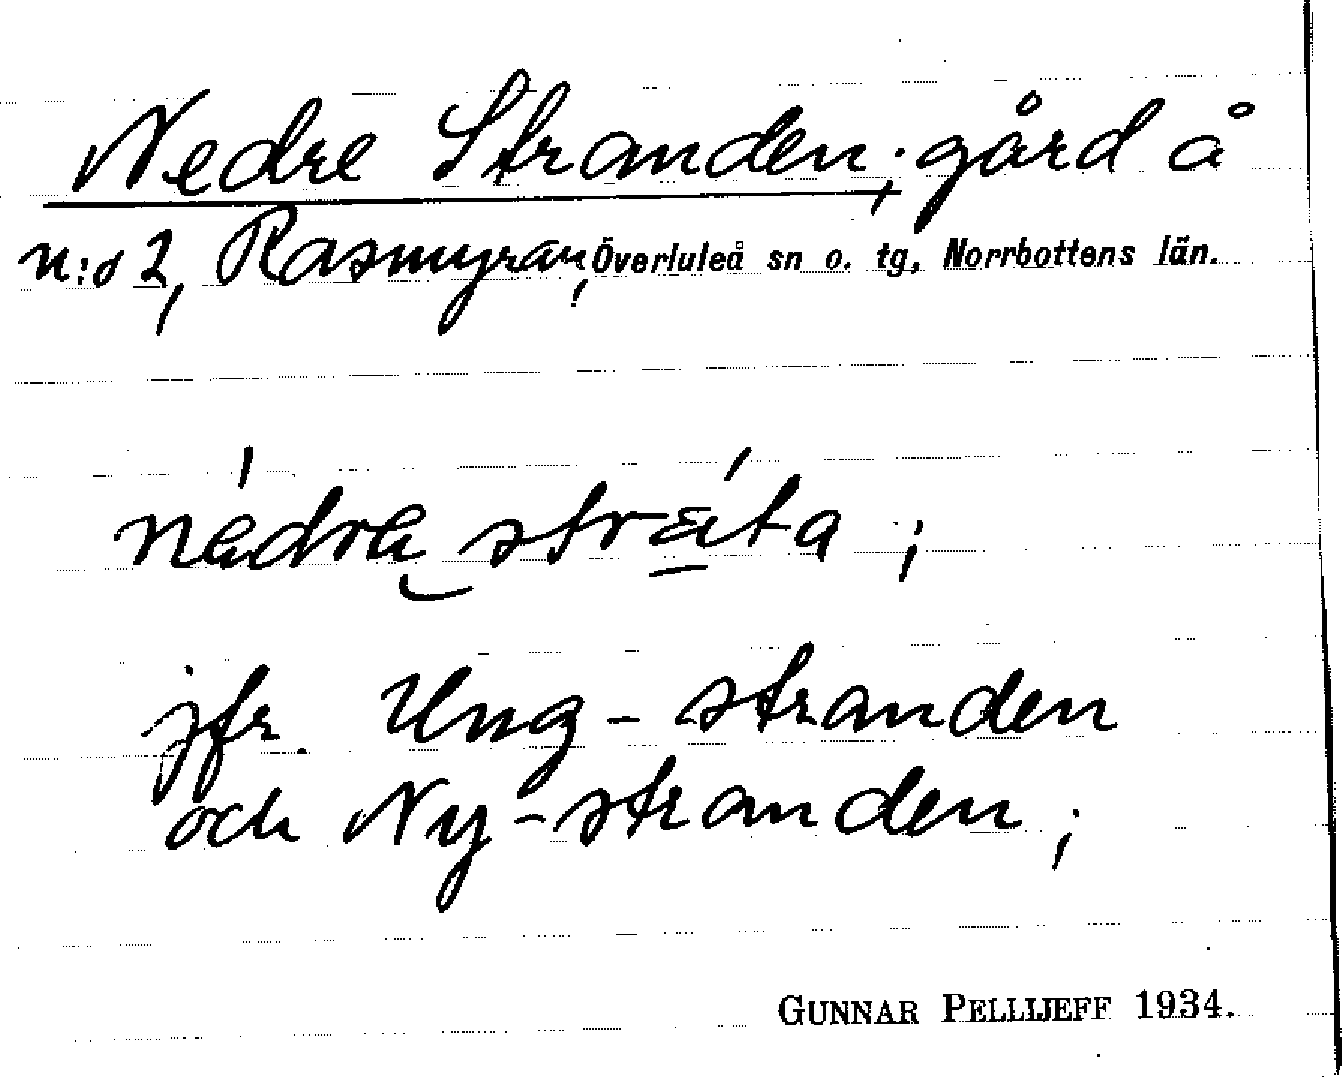 Nedre Stranden; gård å
n:o 2, Rasmyran, Överluleå sn o. tg, Norrbottens län.
nédra stráta ;
jfr. Ung-stranden
och Ny-stranden ;
GUNNAR PELLIJEFF 1934.